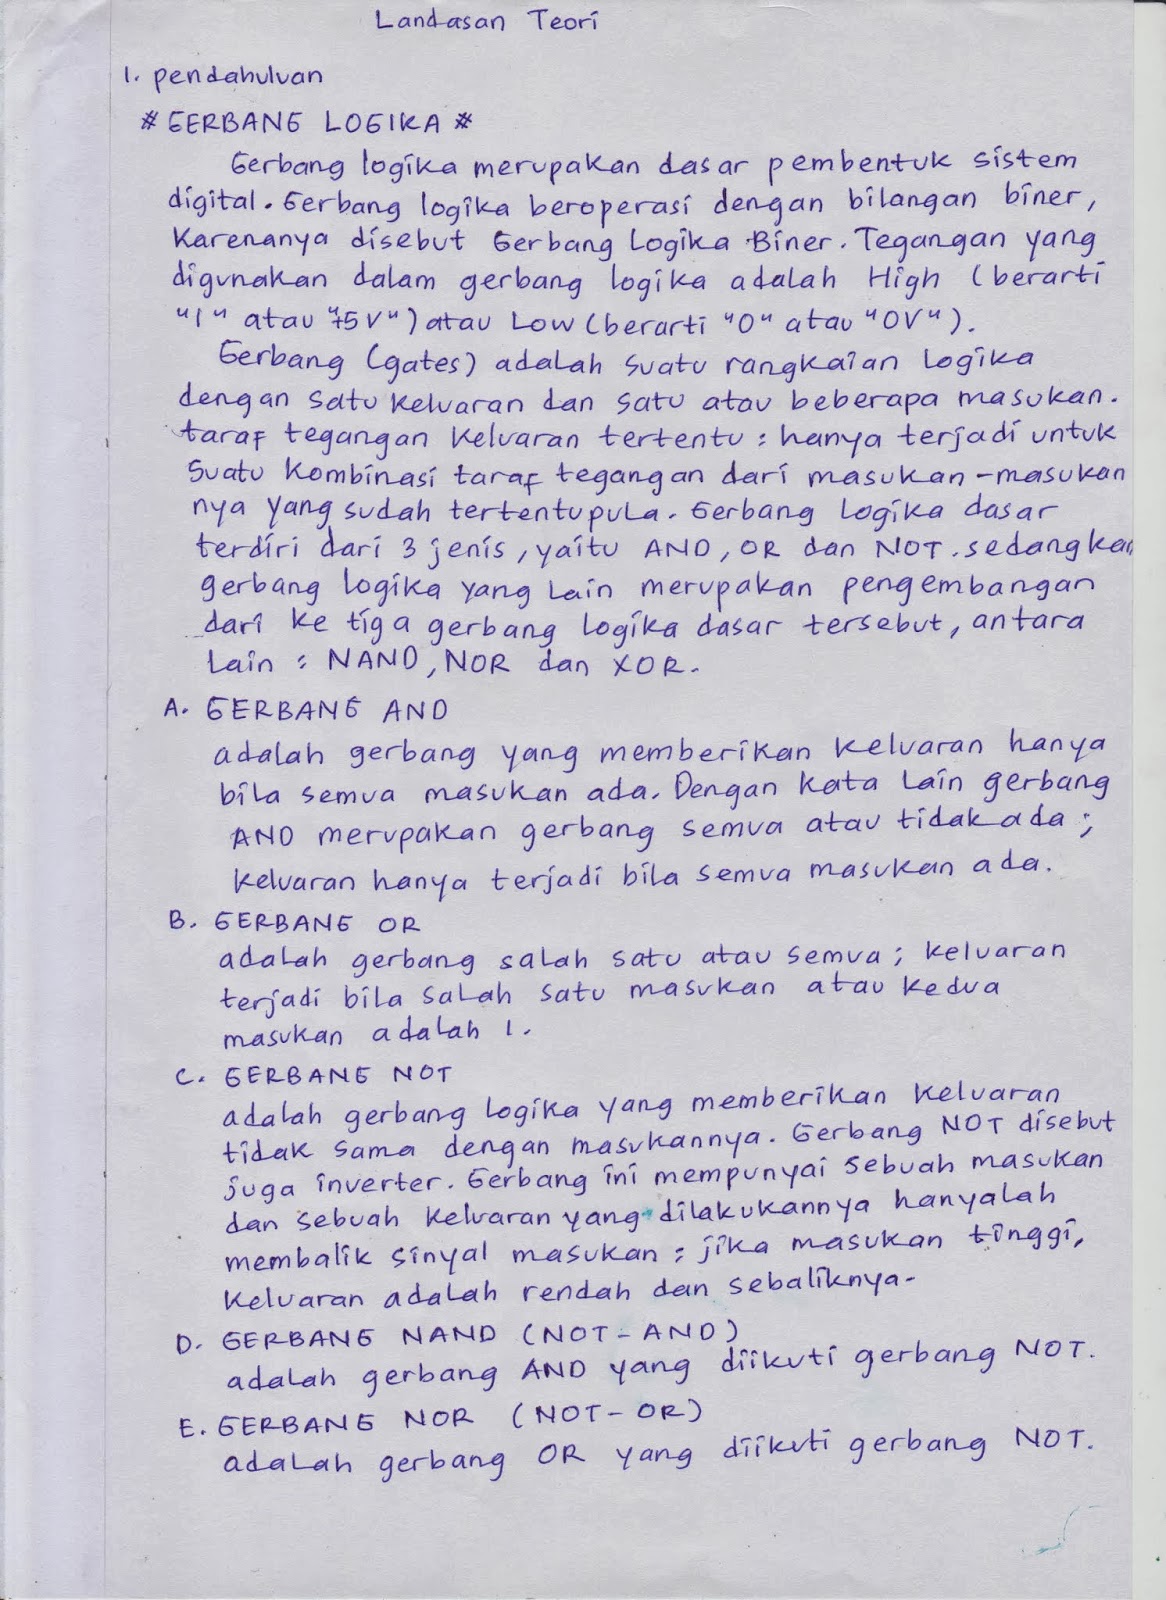 Landasan Teori
1. pendahuluan
# GERBANG LOGIKA #
Gerbang logika merupakan dasar pembentuk sistem
digital. Gerbang logika beroperasi dengan bilangan biner,
Karenanya disebut Gerbang Logika Biner. Tegangan yang
digunakan dalam gerbang logika adalah High (berarti
"1" atau "+5V") atau Low (berarti "0" atau "0V").
Gerbang (gates) adalah suatu rangkaian logika
dengan satu keluaran dan satu atau beberapa masukan.
taraf tegangan keluaran tertentu : hanya terjadi untuk
suatu kombinasi taraf tegangan dari masukan-masukan
nya yang sudah tertentupula. Gerbang logika dasar
terdiri dari 3 jenis, yaitu AND, OR dan NOT. sedangkan
gerbang logika yang lain merupakan pengembangan
dari ke tiga gerbang logika dasar tersebut, antara
lain : NAND, NOR dan XOR.
A. GERBANG AND
adalah gerbang yang memberikan keluaran hanya
bila semua masukan ada. Dengan kata lain gerbang
AND merupakan gerbang semua atau tidak ada ;
keluaran hanya terjadi bila semua masukan ada.
B. GERBANG OR
adalah gerbang salah satu atau semua ; keluaran
terjadi bila salah satu masukan atau kedua
masukan adalah 1.
C. GERBANG NOT
adalah gerbang logika yang memberikan keluaran
tidak sama dengan masukannya. Gerbang NOT disebut
juga inverter. Gerbang ini mempunyai sebuah masukan
dan sebuah keluaran yang dilakukannya hanyalah
membalik sinyal masukan ; jika masukan tinggi,
keluaran adalah rendah dan sebaliknya.
D. GERBANG NAND (NOT-AND)
adalah gerbang AND yang diikuti gerbang NOT.
E. GERBANG NOR (NOT-OR)
adalah gerbang OR yang diikuti gerbang NOT.